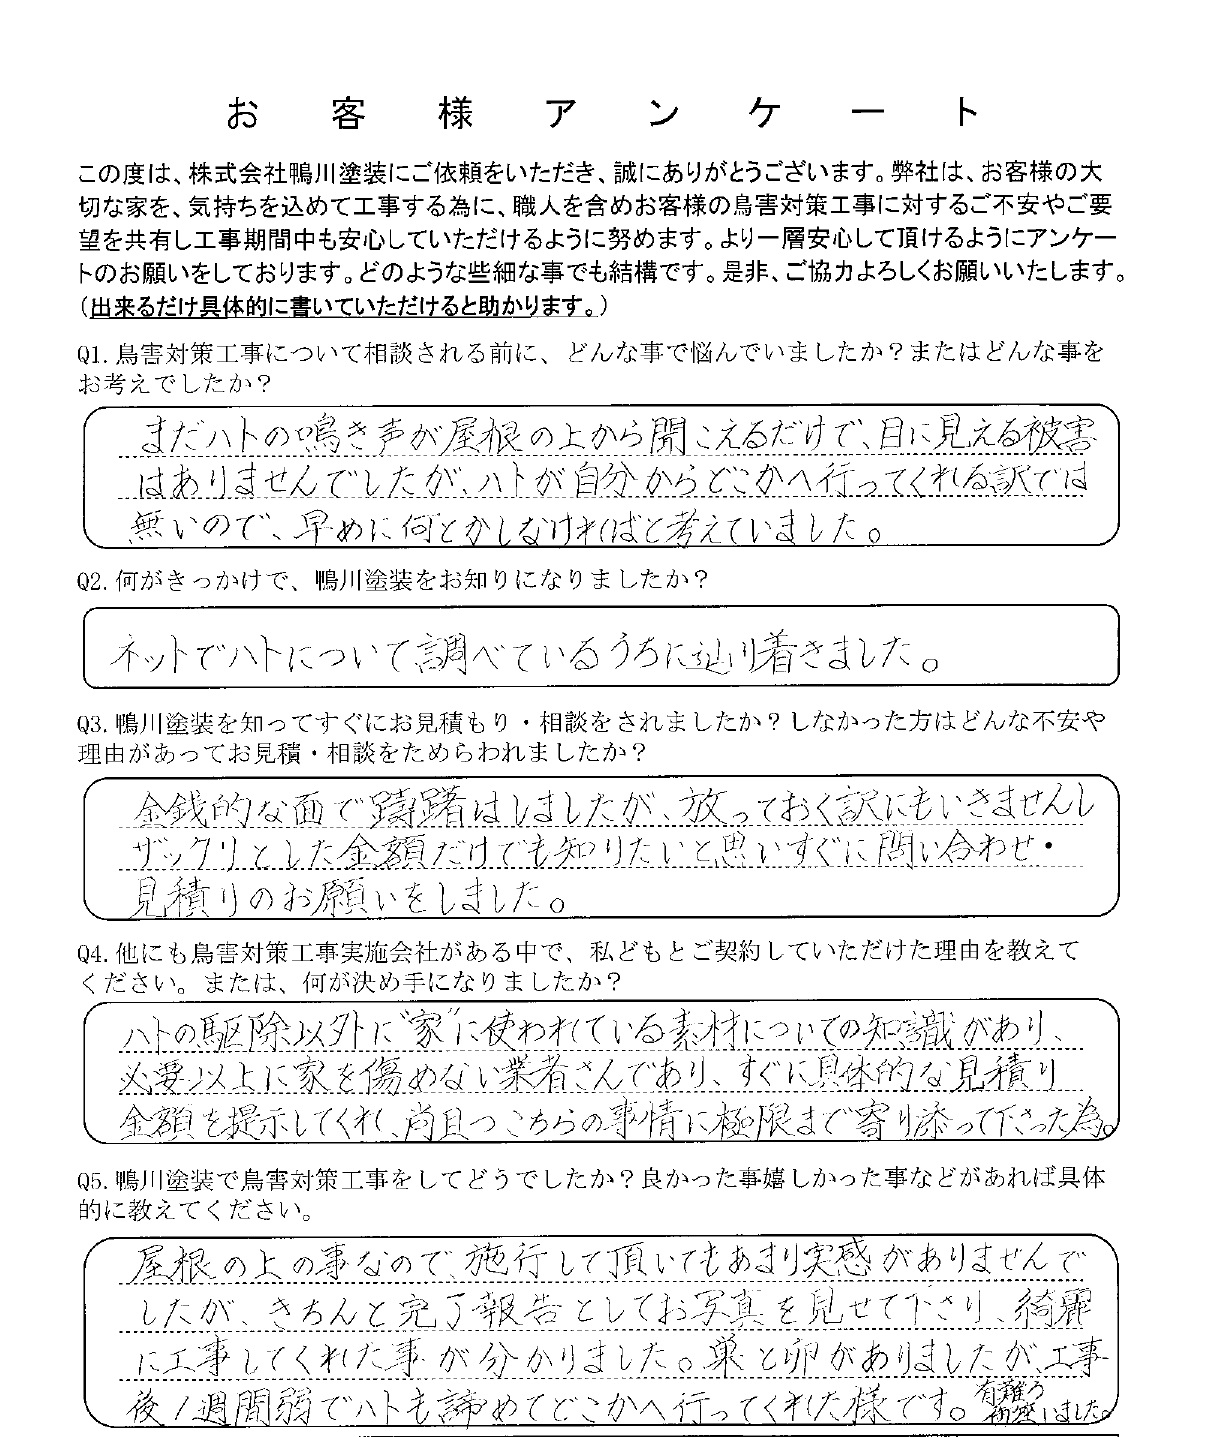 お客様アンケート
この度は、株式会社鴨川塗装にご依頼をいただき、誠にありがとうございます。弊社は、お客様の大
切な家を、気持ちを込めて工事する為に、職人を含めお客様の鳥害対策工事に対するご不安やご要
望を共有し工事期間中も安心していただけるように努めます。より一層安心して頂けるようにアンケー
トのお願いをしております。どのような些細な事でも結構です。是非、ご協力よろしくお願いいたします。
（出来るだけ具体的に書いていただけると助かります。）
Q1.鳥害対策工事について相談される前に、どんな事で悩んでいましたか？またはどんな事を
お考えでしたか？
まだハトの鳴き声が屋根の上から聞こえるだけで、目に見える被害
はありませんでしたが、ハトが自分からどこかへ行ってくれる訳では
無いので、早めに何とかしなければと考えていました。
Q2.何がきっかけで、鴨川塗装をお知りになりましたか？
ネットでハトについて調べているうちに辿り着きました。
Q3.鴨川塗装を知ってすぐにお見積もり・相談をされましたか？しなかった方はどんな不安や
理由があってお見積・相談をためらわれましたか？
金銭的な面で躊躇はしましたが、放っておく訳にもいきませんし
ザックリとした金額だけでも知りたいと思いすぐに問い合わせ・
見積りのお願いをしました。
Q4.他にも鳥害対策工事実施会社がある中で、私どもとご契約していただけた理由を教えて
ください。または、何が決め手になりましたか？
ハトの駆除以外に"家"に使われている素材についての知識があり、
必要以上に家を傷めない業者さんであり、すぐに具体的な見積り
金額を提示してくれ、尚且つこちらの事情に極限まで寄り添って下さった為。
Q5.鴨川塗装で鳥害対策工事をしてどうでしたか？良かった事嬉しかった事などがあれば具体
的に教えてください。
屋根の上の事なので、施行して頂いてもあまり実感がありませんで
したが、きちんと完了報告としてお写真を見せて下さり、綺麗
に工事してくれた事が分かりました。巣と卵がありましたが、工事
後1週間弱でハトも諦めてどこかへ行ってくれた様です。有難う
御座いました。